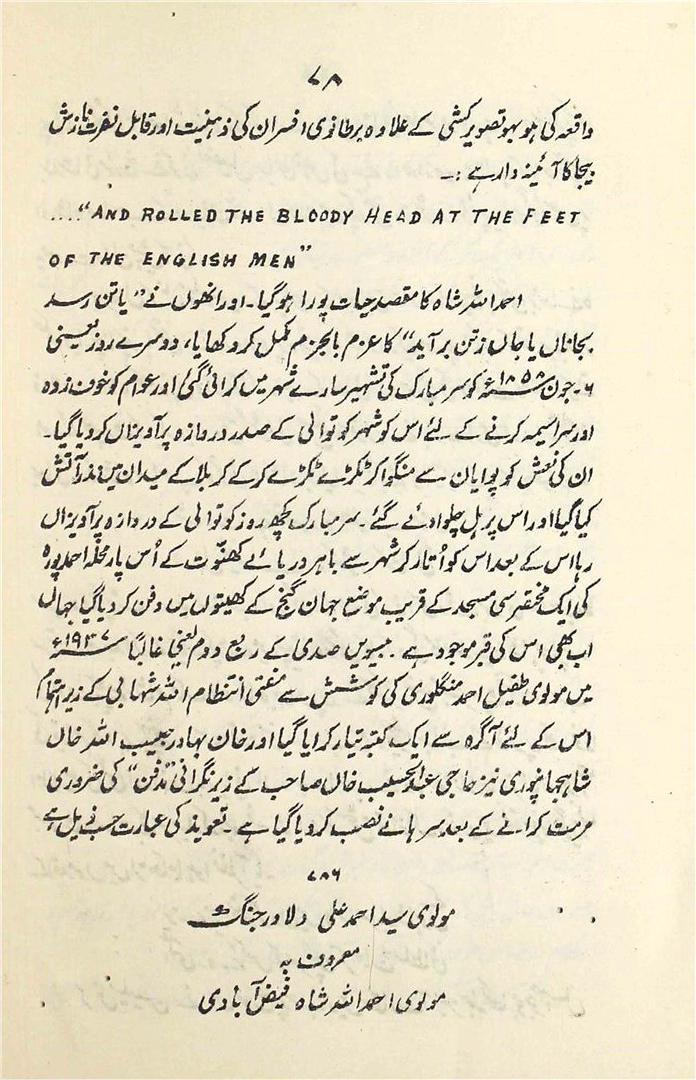 ۷۸
واقعہ کی ہو بہو تصویر کشی کے علاوہ برطانوی افسران کی ذہنیت اور قابل نفرت نازش
بیجا کا آئینہ دار ہے :۔
...."AND ROLLED THE BLOODY HEAD AT THE FEET
OF THE ENGLISH MEN"
احمد اللہ شاہ کا مقصد حیات پورا ہوگیا۔ اور انھوں نے "یا تن رسد
بجاناں یا جاں زتن برآید" کا عزم بالجزم مکمل کر دکھایا، دوسرے روز یعنی
۶۔جون ۱۸۵۸ء کو سر مبارک کی تشہیر سارے شہر میں کرائی گئی اور عوام کو خوف زدہ
اور سراسیمہ کرنے کے لئے اس کو شہر کوتوالی کے صدر دروازہ پر آویزاں کر دیا گیا۔
ان کی نعش کو پوایاں سے منگوا کر ٹکڑے ٹکڑے کرکے کربلا کے میدان میں نذر آتش
کیا گیا اور اس پر ہل چلوا دئے گئے۔ سر مبارک کچھ روز کوتوالی کے دروازہ پر آویزاں
رہا اس کے بعد اس کو اُتار کر شہر سے باہر دریائے کھنوت کے اُس پار محلہ احمد پورہ
کی ایک مختصر سی مسجد کے قریب موضع جہان گنج کے کھیتوں میں دفن کر دیا گیا جہاں
اب بھی اس کی قبر موجود ہے۔ بیسویں صدی کے ربع دوم یعنی غالباً ۱۹۳۷ء
میں مولوی طفیل احمد منگلوری کی کوشش سے مفتی انتظام اللہ شہابی کے زیر اہتمام
اس کے لئے آگرہ سے ایک کتبہ تیار کرایا گیا اور خان بہادر حبیب اللہ خاں
شاہجہانپوری نیز حاجی عبدالحسیب خاں صاحب کے زیر نگرانی "مدفن" کی ضروری
مرمت کرانے کے بعد سرہانے نصب کر دیا گیا ہے۔ تعویذ کی عبارت حسب ذیل ہے
۷۸۶
مولوی سید احمد علی دلاور جنگ
معروف بہ
مولوی احمد اللہ شاہ فیض آبادی